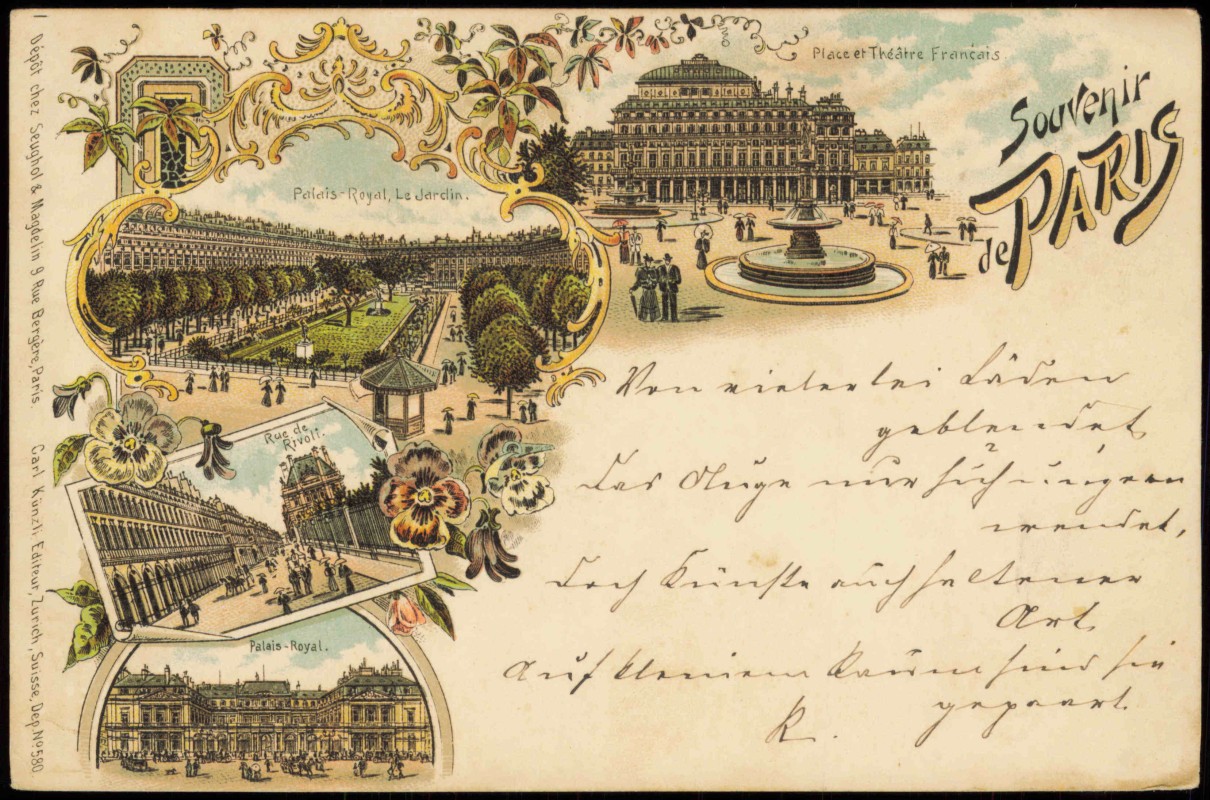 Dépôt chez Seughol & Magdelin 9 Rue Bergère, Paris.
Carl Künzli Editeur, Zurich, Suisse, Dep. Nº 580.
Palais-Royal, Le Jardin.
Place et Théâtre Français
Souvenir
de PARIS
Rue de
Rivoli.
Palais-Royal.
Von vielerlei Läden
geblendet
Das Auge nur sich ungern
wendet,
Doch Künste auch seltener
Art,
Auf kleinem Raum sind sie
gepaart.
R.